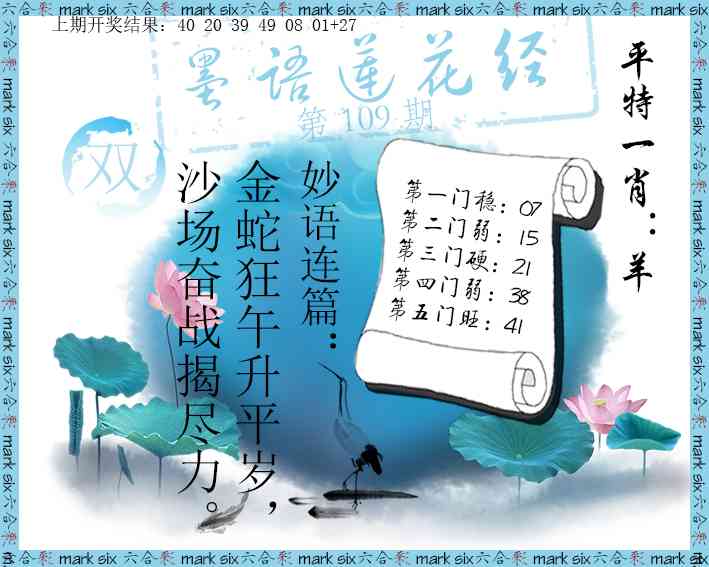 上期开奖结果: 40 20 39 49 08 01+27
墨语莲花经
第 109 期
双
平特一肖：羊
妙语连篇：
金蛇狂午升平岁，
沙场奋战揭尽力。
第一门稳：07
第二门弱：15
第三门硬：21
第四门弱：38
第五门旺：41
mark six六合彩 mark six六合彩 mark six六合彩 mark six六合彩 mark six六合彩 mark six六合彩